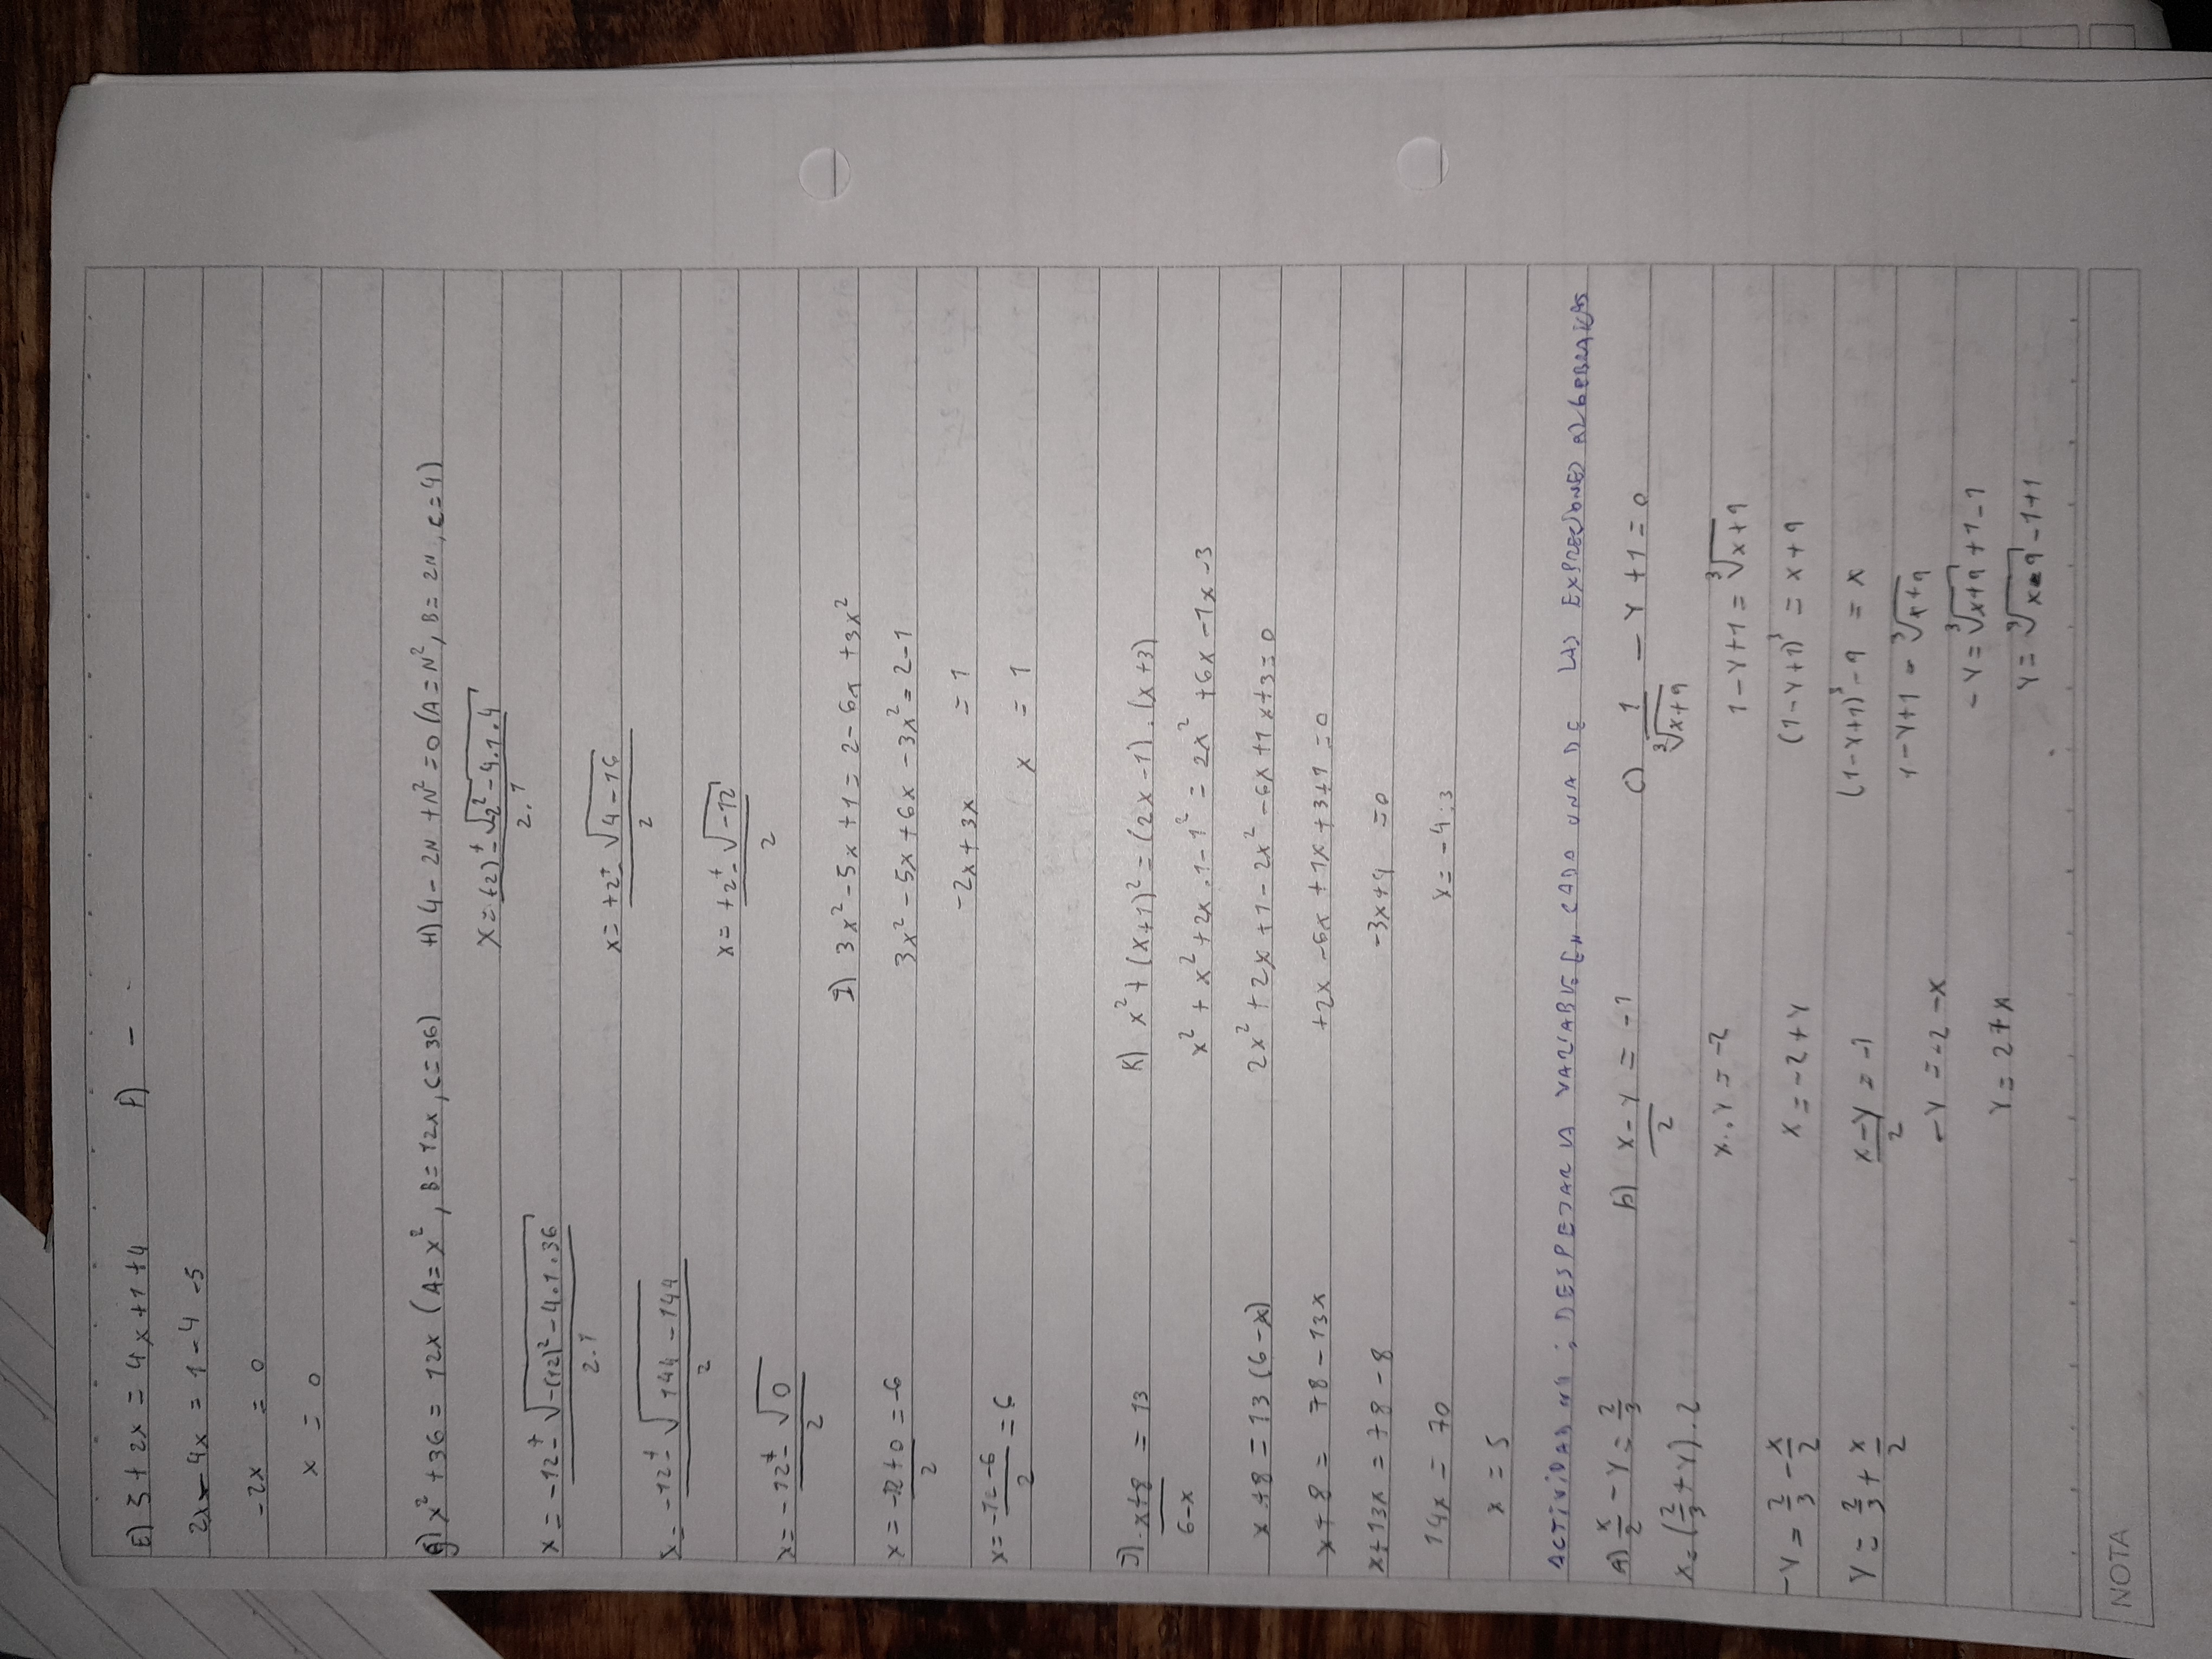 E) 5+2x = 4x+1+4
2x-4x = 1-4-5
-2x = 0
x = 0
F) -
G) x²+36 = 12x (A=x², B=12x, C=36)
x = -12 ± √-(12)²-4.1.36 / 2.1
x = -12 ± √144-144 / 2
x = -12 ± √0 / 2
x = -12+0 / 2 = -6
x = -12-6 / 2 = 6
H) 4-2N+N²=0 (A=N², B=2N, C=4)
x = (+2) ± √2²-4.1.4 / 2.1
x = +2 ± √4-16 / 2
x = +2 ± √-12 / 2
I) 3x²-5x+1 = 2-6x+3x²
3x²-5x+6x-3x² = 2-1
-2x+3x = 1
x = 1
J) x+8 / 6-x = 13
x+8 = 13(6-x)
x+8 = 78-13x
x+13x = 78-8
14x = 70
x = 5
K) x²+(x+1)² = (2x-1).(x+3)
x²+x²+2x.1-1² = 2x²+6x-1x-3
2x²+2x+1-2x²-6x+1x+3=0
+2x-6x+1x+3+1=0
-3x+4 =0
x = -4:3
ACTIVIDAD N4; DESPEJAR LA VARIABLE EN CADA UNA DE LAS EXPRECIONES ALGEBRAICAS
A) x/2 - Y = 2/3
x = (2/3 + Y).2
-Y = 2/3 - x/2
Y = 2/3 + x/2
b) x-Y / 2 = -1
x-Y = -2
x = -2+Y
x-Y / 2 = -1
-Y = -2-x
Y = 2+x
C) 1 / ³√x+9 - Y+1=0
1-Y+1 = ³√x+9
(1-Y+1)³ = x+9
(1-Y+1)³-9 = x
1-Y+1 = ³√x+9
-Y = ³√x+9+1-1
Y = ³√x-9-1+1
NOTA